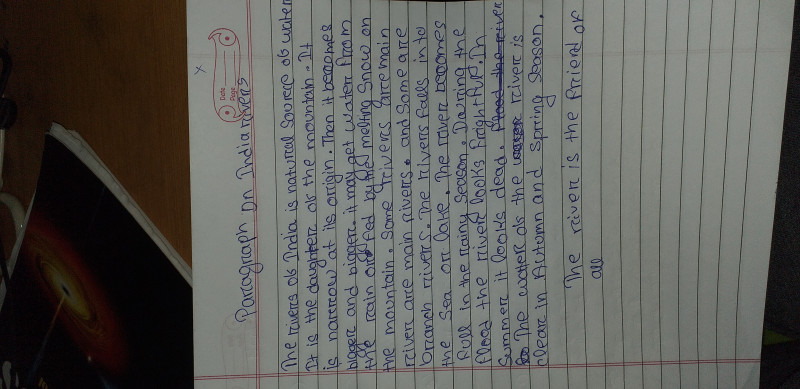 Date
Page
Paragraph on India rivers
The rivers of India is natural source of water
It is the daughter of the mountain. It
is narrow at its origin. Than it becomes
bigger and bigger. it may get water from
the rain and fed by the melting snow on
the mountain. Some rivers are main
river are main rivers. and some are
branch rivers. The rivers falls into
the sea or lake. The river becomes
full in the rainy season. During the
flood the river looks frightful. In
summer it looks dead. Flood the river
So The water of the water river is
clear in Autumn and spring season.
The river is the friend of
all